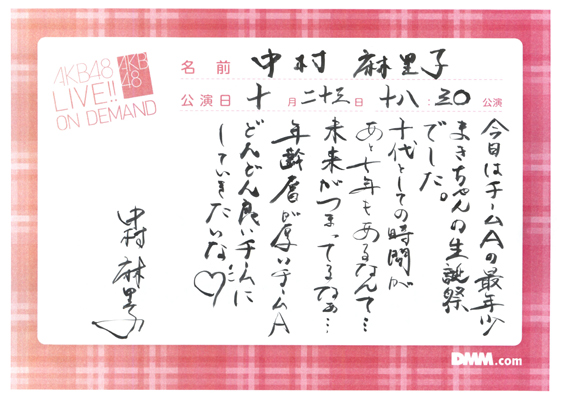 AKB48
LIVE!!
ON DEMAND
AKB
48
名前 中村 麻里子
公演日 十月二十三日 十八:30 公演
今日はチームAの最年少
まきちゃんの生誕祭
でした。
十代としての時間が
あと七年もあるなんて…
未来がつまってるなぁ…
年齢層が厚いチームA
どんどん良いチームに
していきたいな♡
中村 麻里子
DMM.com